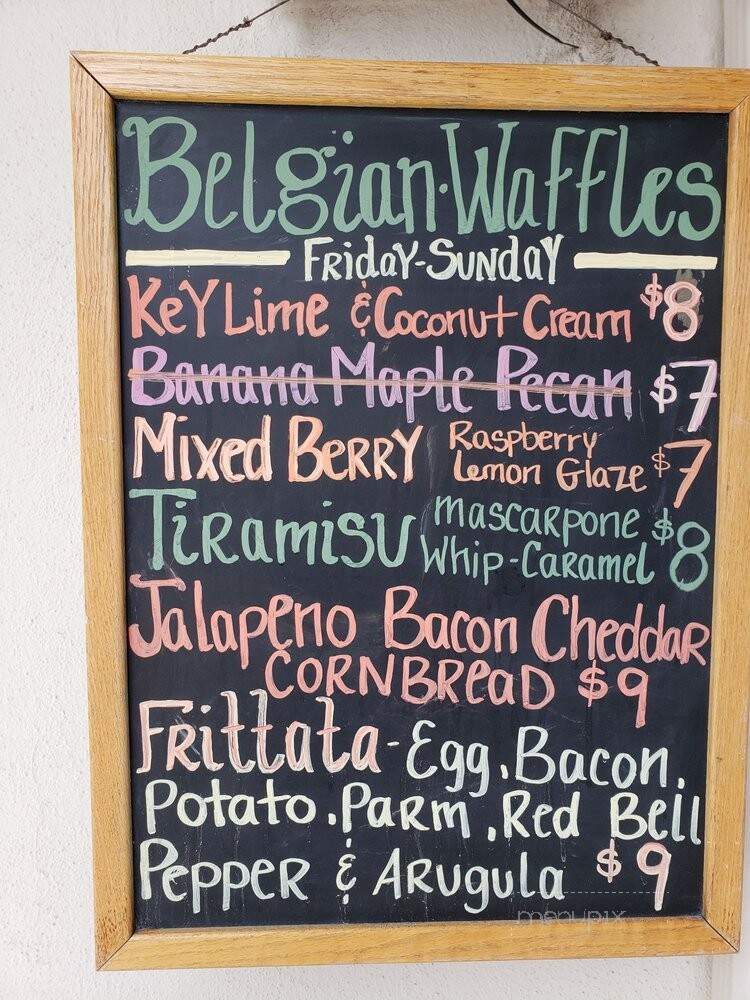 Belgian·Waffles
Friday-Sunday
Key Lime & Coconut Cream $8
Banana Maple Pecan $7
Mixed Berry Raspberry Lemon Glaze $7
Tiramisu mascarpone Whip-Caramel $8
Jalapeno Bacon Cheddar
Cornbread $9
Frittata-Egg, Bacon,
Potato, Parm, Red Bell
Pepper & Arugula $9
menupix